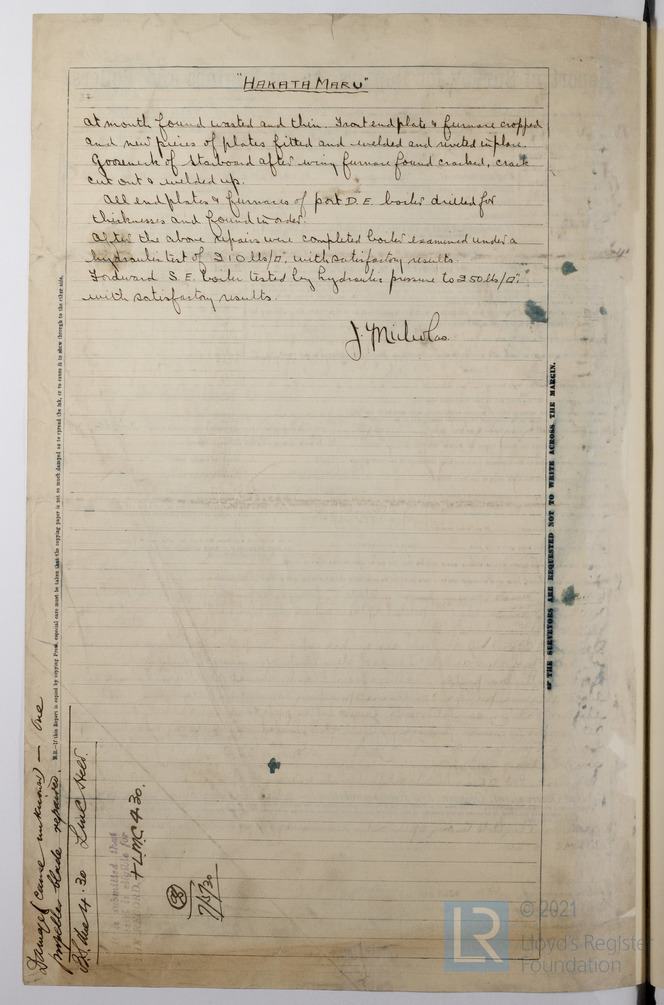 "HAKATA MARU"
at mouth found wasted and thin. Front end plate & furnace cropped
and new pieces of plates fitted and welded and riveted in place.
Gooseneck of Starboard after wing furnace found cracked, crack
cut out & welded up.
All end plates & furnaces of port D.E. boiler drilled for
thickness and found in order.
After the above repairs were completed boiler examined under a
hydraulic test of 210 lbs/□", with satisfactory results.
Forward S.E. boiler tested by hydraulic pressure to 250 lbs/□"
with satisfactory results.
J. Nicholas
N.B.—If this Report is copied by copying Press, especial care must be taken that the copying paper is not so much damped as to spread the ink, or to cause it to show through to the other side.
THE SURVEYORS ARE REQUESTED NOT TO WRITE ACROSS THE MARGIN.
Damage (cause unknown) — One
propeller blade repaired.
4.30
submitted that
eligible for
RECORD. + LMC 4.30.
7/5/30
LR
© 2021
Lloyd's Register
Foundation